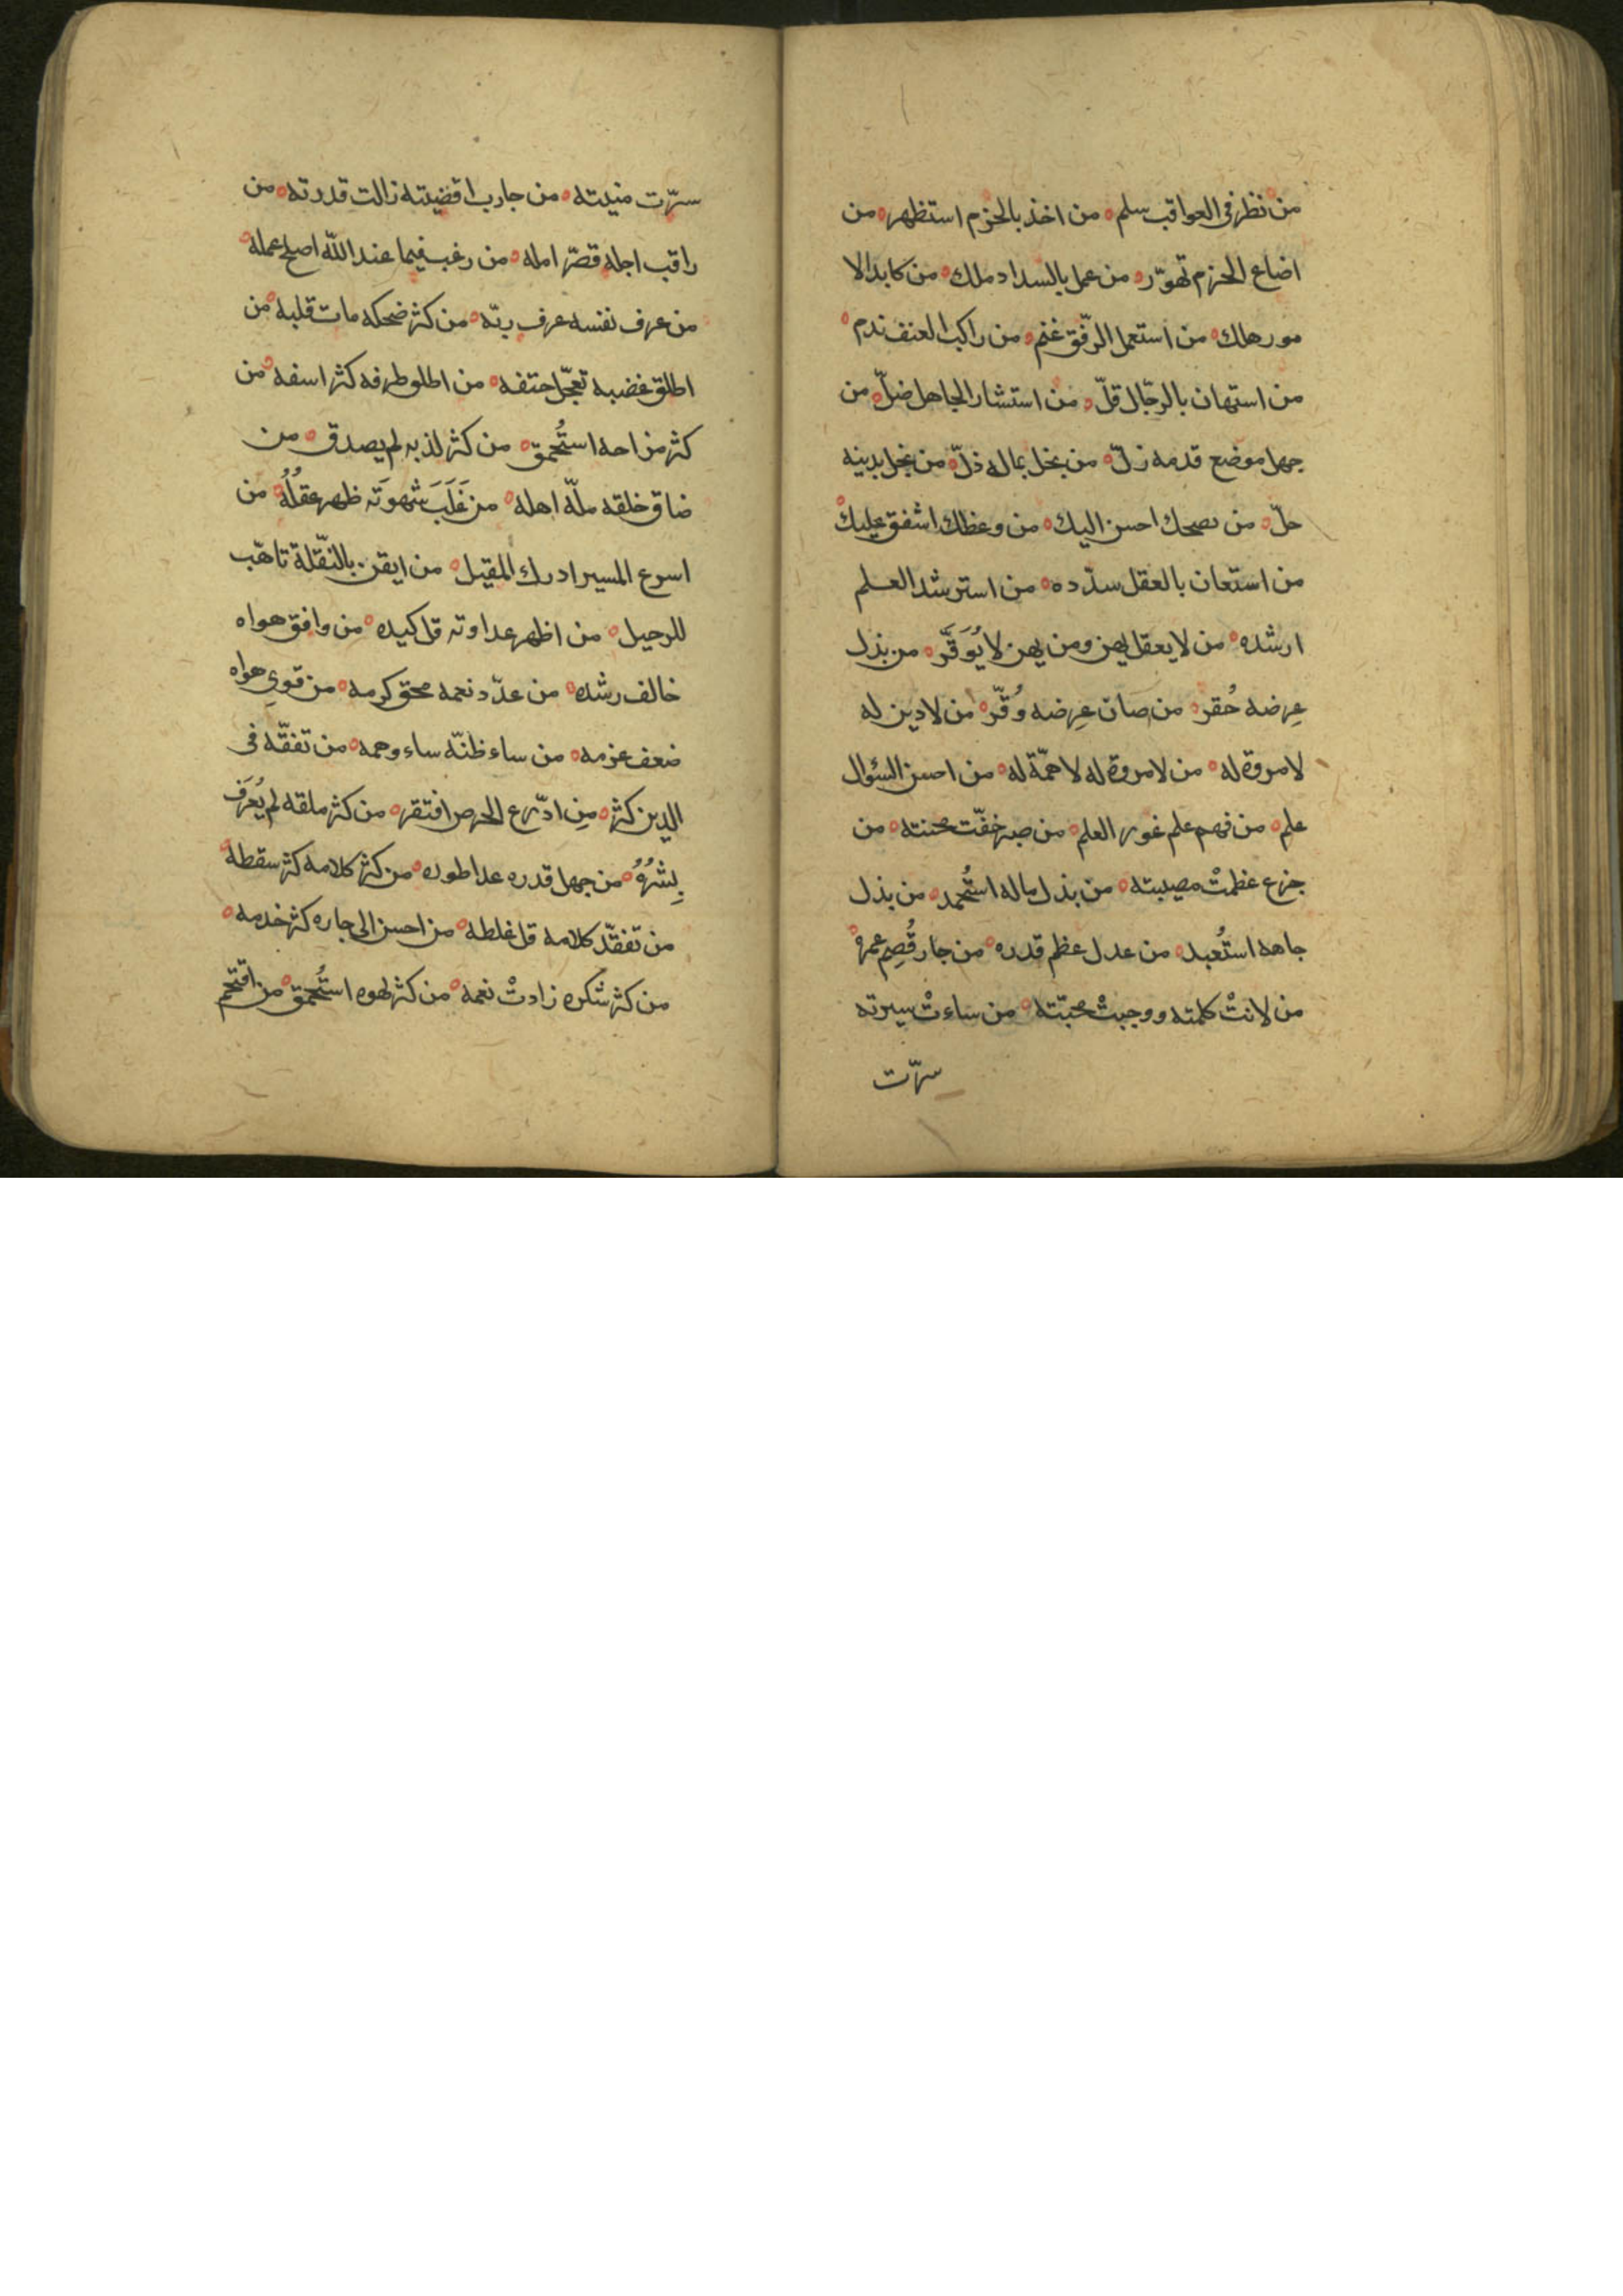 من نظر فى العواقب سلم ه من اخذ بالحزم استظهر ه من
اضاع الحزم تهوّر ه من عمل بالسداد ملك ه من كابد الا
مور هلك ه من استعمل الرّفق غنم ه من راكب العنف ندم ه
من استهان بالرّجال قلّ ه من استشار الجاهل ضلّ ه من
جهل موضع قدمه زلّ ه من بخل بماله ذلّ ه من بخل بدينه
حلّ ه من نصحك احسن اليك ه من وعظك اشفق عليك ه
من استعان بالعقل سدّده ه من استرشد العلم
ارشده ه من لا يعقل يهن ومن يهن لا يُوَقَّر ه من بذل
عِرضه حُقر ه من صان عِرضه وُقّر ه من لا دين له
لا مروة له ه من لا مروة له لا همّة له ه من احسن السئوال
علم ه من فهم علم غور العلم ه من صبر خفّت محنته ه من
جزع عظمتْ مصيبته ه من بذل ماله استُحمد ه من بذل
جاهه استُعبد ه من عدل عظم قدره ه من جار قُصِم عمره ه
من لانتْ كلمته ووجبتْ محبّته ه من ساءتْ سيرته
سرّت
سرّت منيته ه من جار ب اقضيته زالت قدرته ه من
راقب اجله قصّر امله ه من رغب فيما عند اللّه اصلح عمله ه
من عرف نفسه عرف ربّه ه من كثر ضحكه مات قلبه ه من
اطلق غضبه تعجّل حتفه ه من اطلو طرفه كثر اسفه ه من
كثر مزاحه استُحمق ه من كثر لذبه لم يصدق ه من
ضاق خلقه ملّه اهله ه من غَلَبَ شهوَته ظهر عقلُهُ ه من
اسرع المسير ادرك المقيل ه من ايقن بالنّقلة تاهّب
للرحيل ه من اظهر عداوته قل كيده ه من وافق هواه
خالف رشده ه من عدّد نعمه محق كرمه ه من قوي هواه
ضعف عزمه ه من ساء ظنّه ساء وهمه ه من تفقّه فى
الدين كثر ه مِن ادّرع الحرص افتقر ه من كثر ملقه لم يُعرَف
بِشرُهُ ه من جهل قدره عدا طوره ه من كثر كلامه كثر سقطه ه
من تفقّد كلامه قل غلطه ه من احسن الى جاره كثر خدمه ه
من كثر شكره زادتْ نعمه ه من كثر لهوه استُحمق ه من اقتحم